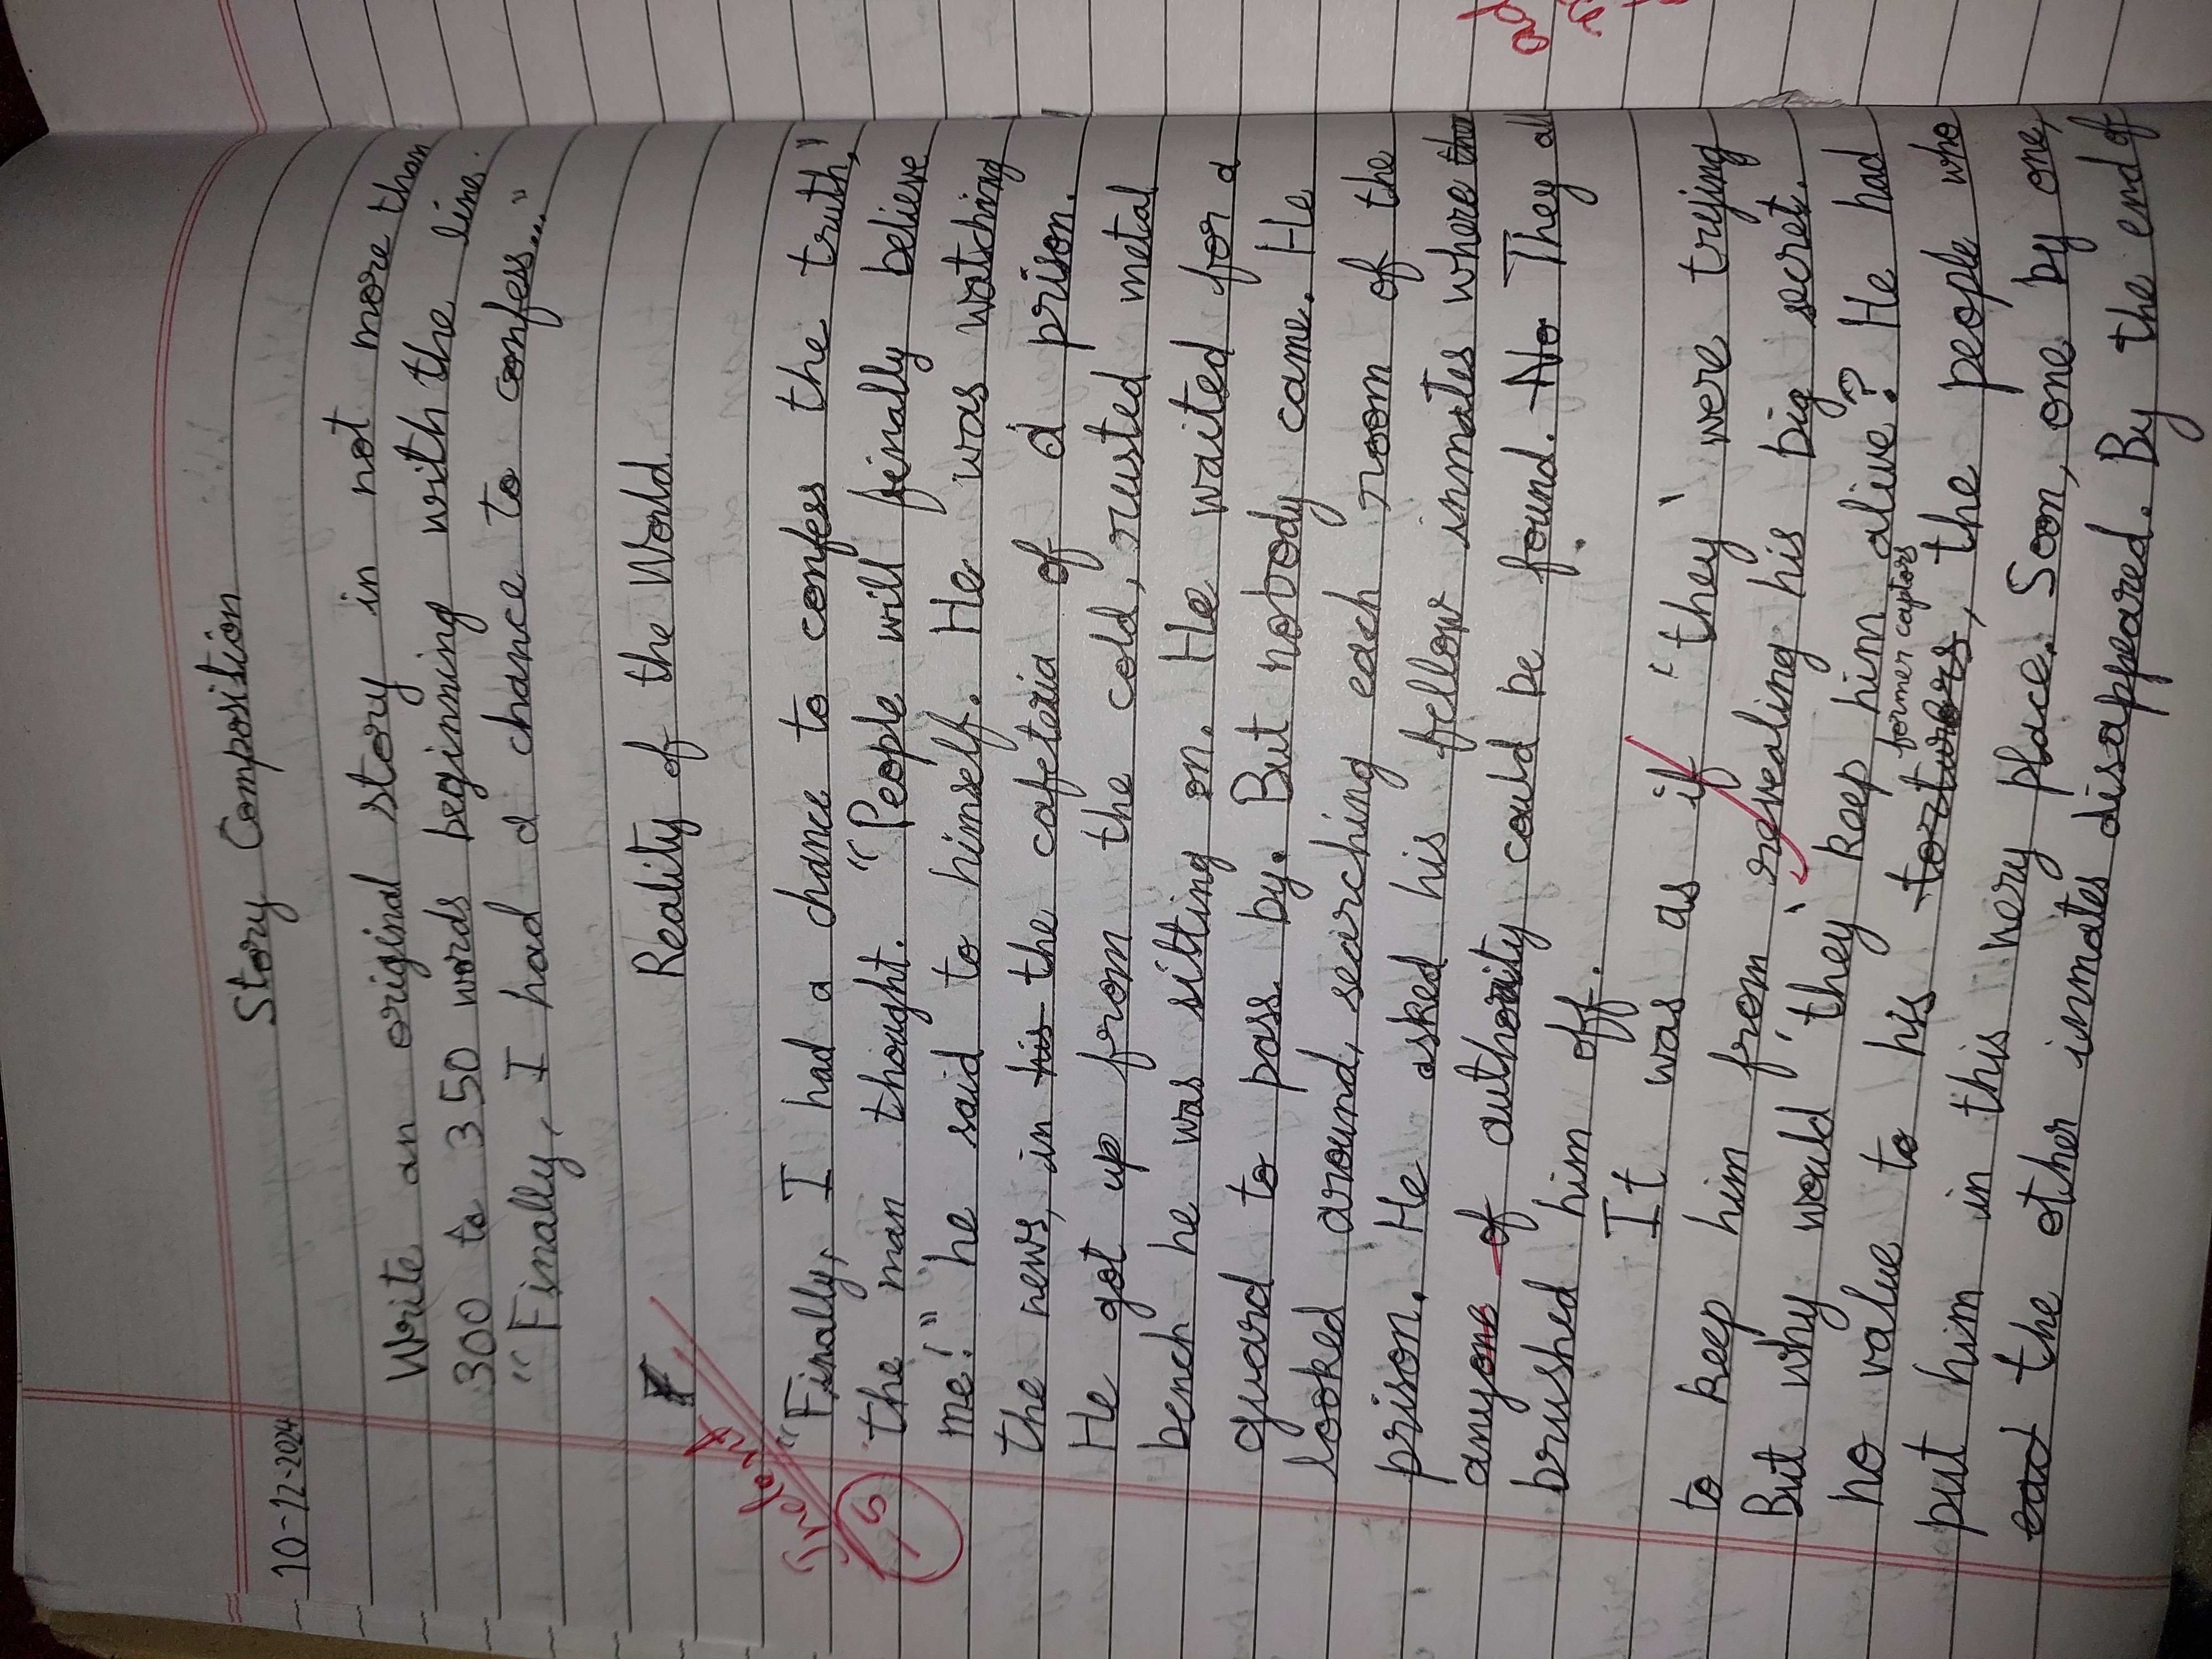 Story Composition
10-12-2024
Write an original story in not more than
300 to 350 words beginning with the line.
“Finally, I had a chance to confess...”
Reality of the World.
Indent
-5
“Finally, I had a chance to confess the truth,”
the man thought. “People will finally believe
me!” he said to himself. He was watching
the news, in his the cafeteria of a prison.
He got up from the cold, rusted metal
bench he was sitting on. He waited for a
guard to pass by. But nobody came. He
looked around, searching each room of the
prison. He asked his fellow inmates where the
anyone of authority could be found. No They all
brushed him off.
It was as if ‘they’ were trying
to keep him from revealing his big secret.
But why would ‘they’ keep him alive? He had
former captors
no value to his torturers, the people who
put him in this very place. Soon, one by one,
ead the other inmates disappeared. By the end of